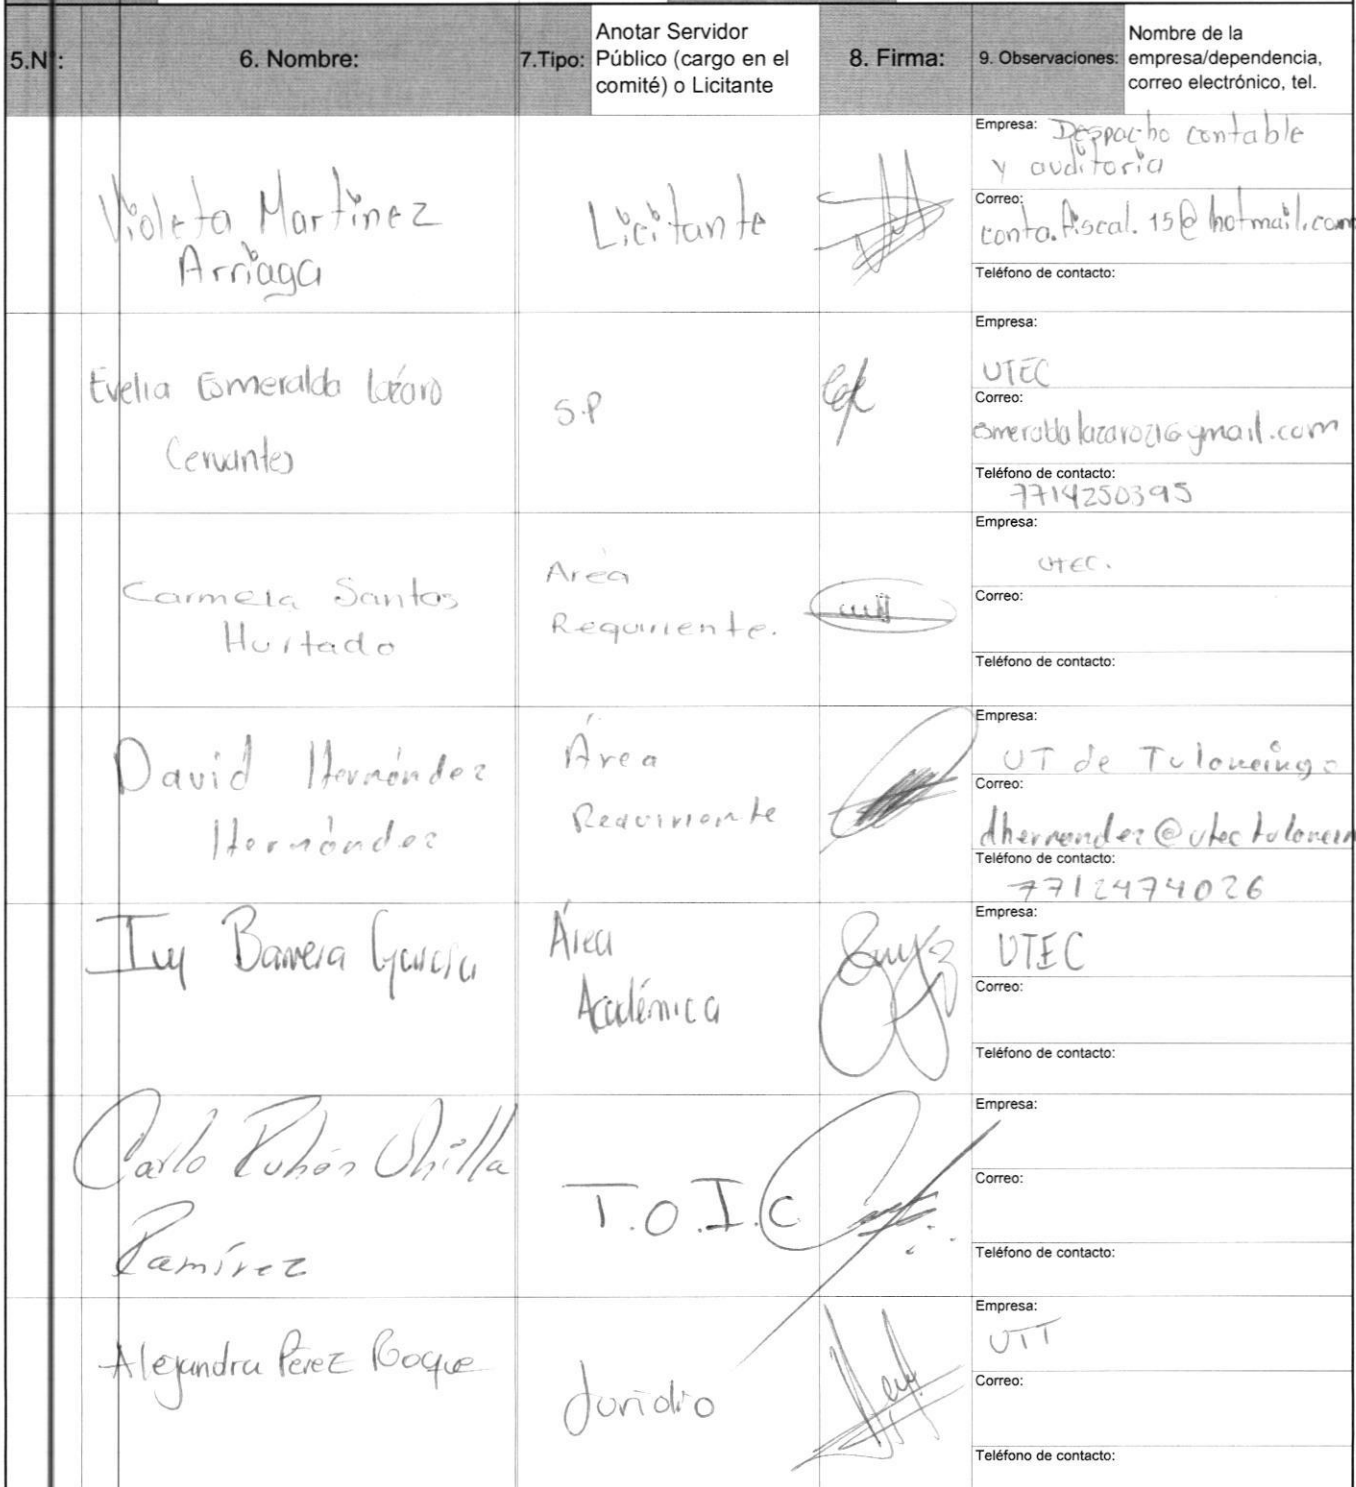 5.N°: 6. Nombre: 7.Tipo: Anotar Servidor Público (cargo en el comité) o Licitante 8. Firma: 9. Observaciones: Nombre de la empresa/dependencia, correo electrónico, tel.
Violeta Martinez
Arriaga
Licitante
Empresa: Despacho contable
y auditoria
Correo:
conta.fiscal.15@hotmail.com
Teléfono de contacto:
Evelia Esmeralda Lázaro
Cervantes
S.P
Empresa:
UTEC
Correo:
esmeraldalazaro21@gmail.com
Teléfono de contacto:
7714250395
Carmela Santos
Hurtado
Area
Requiriente.
Empresa:
UTEC.
Correo:
Teléfono de contacto:
David Hernández
Hernández
Área
Requiriente
Empresa:
UT de Tulancingo
Correo:
dhernandez@utectulancin
Teléfono de contacto:
7712474026
Ivy Barrera García
Área
Académica
Empresa:
UTEC
Correo:
Teléfono de contacto:
Carlo Rubén
Ramírez
T.O.I.C
Empresa:
Correo:
Teléfono de contacto:
Alejandra Pérez Roque
Empresa:
UTT
Correo:
Teléfono de contacto: